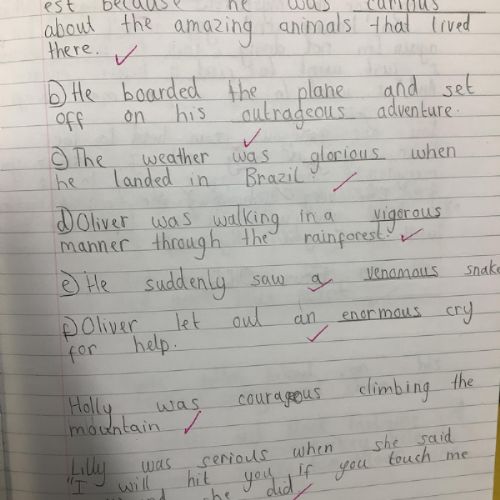 est because he was curious
about the amazing animals that lived
there.
b) He boarded the plane and set
off on his outrageous adventure.
c) The weather was glorious when
he landed in Brazil.
d) Oliver was walking in a vigorous
manner through the rainforest.
e) He suddenly saw a venomous snake
f) Oliver let out an enormous cry
for help.
Holly was courageous climbing the
mountain
Lilly was serious when she said
"I will hit you if you touch me
she did